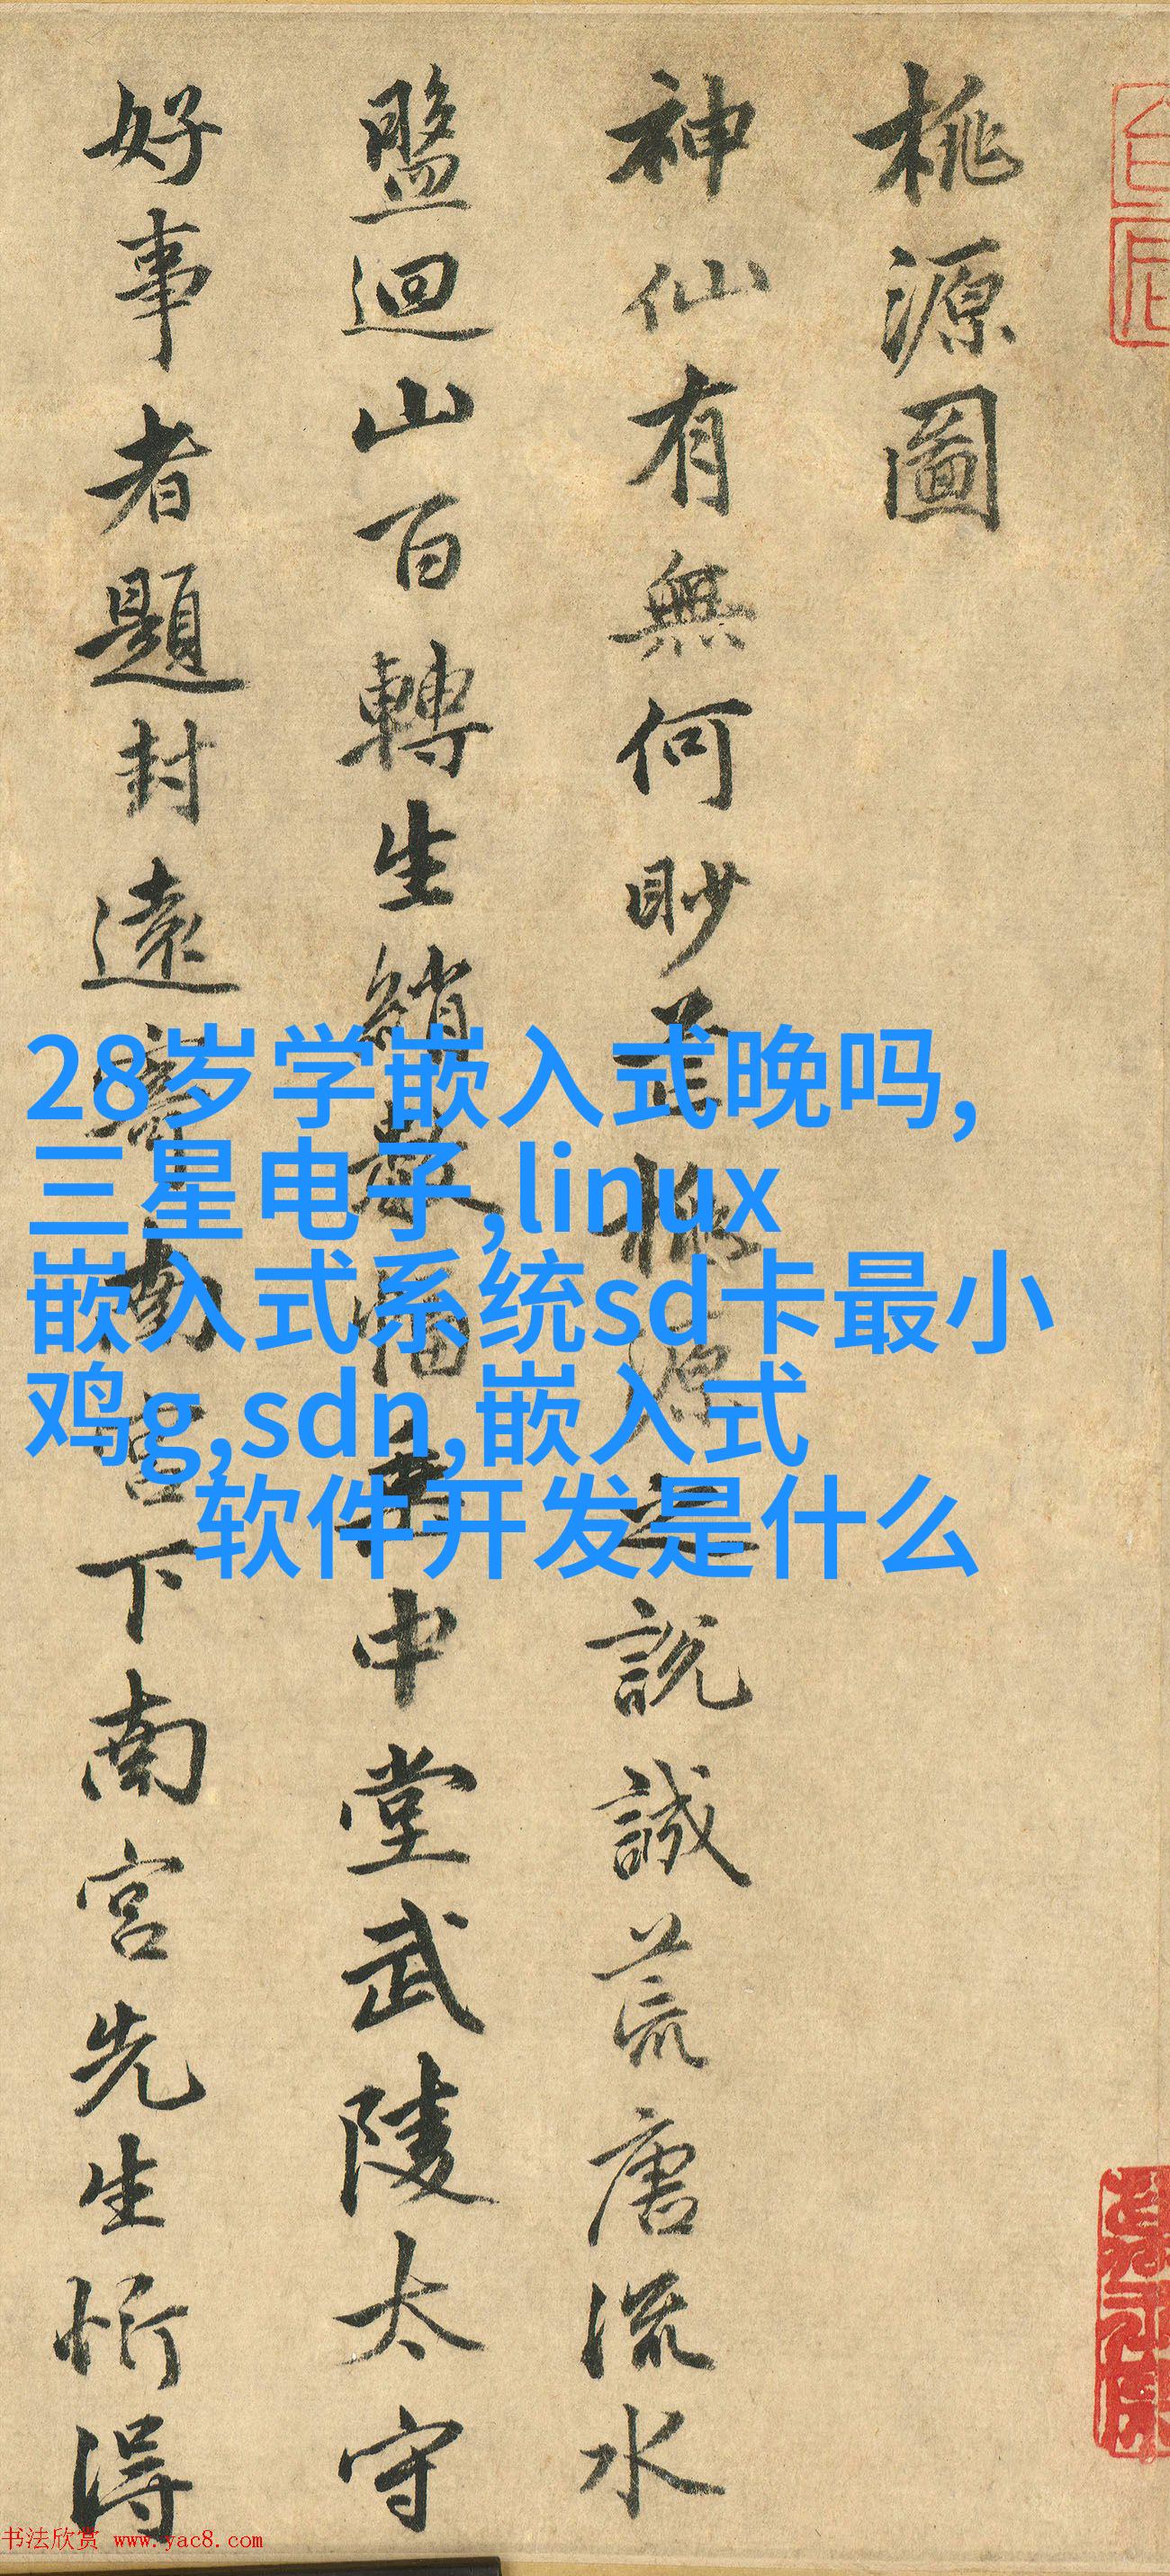 桃源圖
神仙有無何眇芒桃源之說誠荒唐流水
盤迴山百轉生綃數幅垂中堂武陵太守
好事者題封遠寄南宮下南宮先生忻得
28岁学嵌入式晚吗,
三星电子,linux
嵌入式系统sd卡最小
鸡g,sdn,嵌入式
软件开发是什么
书法欣赏 www.yac8.com